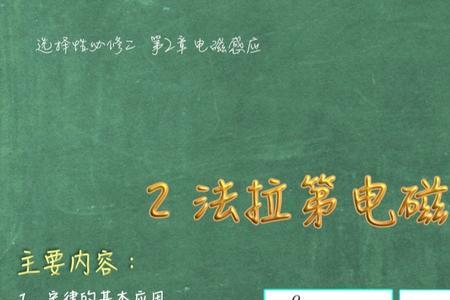 选择性必修二 第2章电磁感应
2 法拉第电磁
主要内容：
1、定律的基本应用